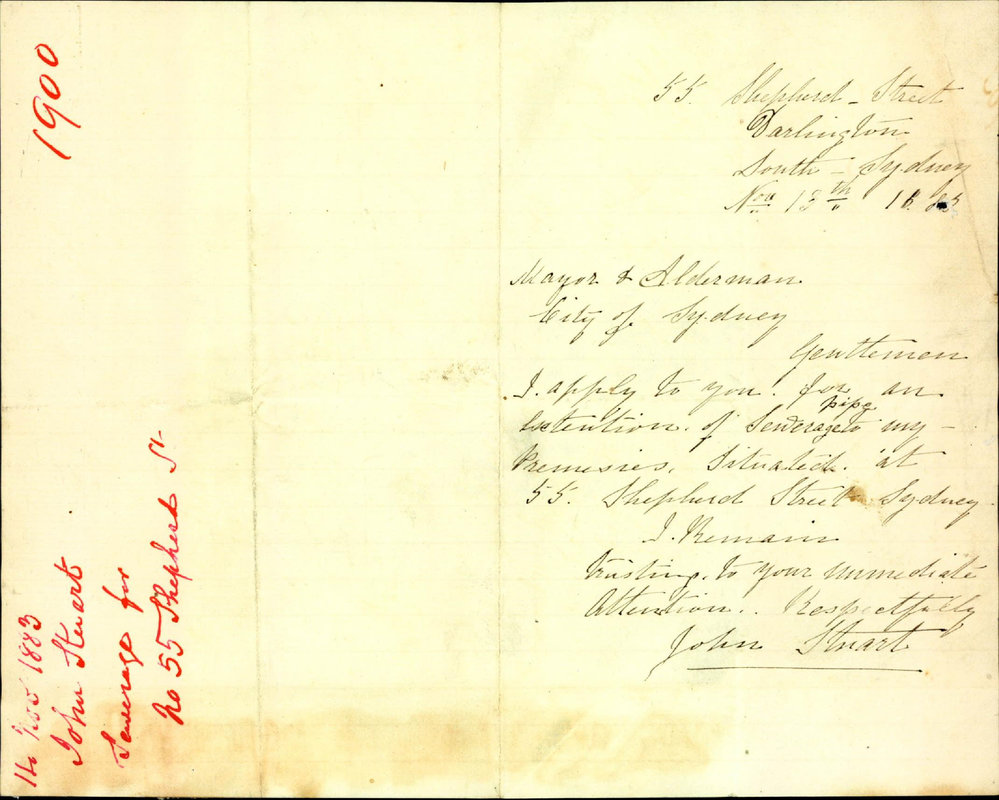 1900
14 Nov 1883
John Stewart
Sewerage for
No 55 Shepherd St
55. Shepherd - Street
Darlington
South - Sydney
Nov 13th
Mayor & Alderman
City of Sydney
Gentlemen
I. apply to you. for an
Extention. of Sewerage pipe to my -
Premesies. Situated. at
55. Shepherd Street Sydney.
I. Remain
Trusting. to your immediate
Attention.. Respectfully
John Stuart